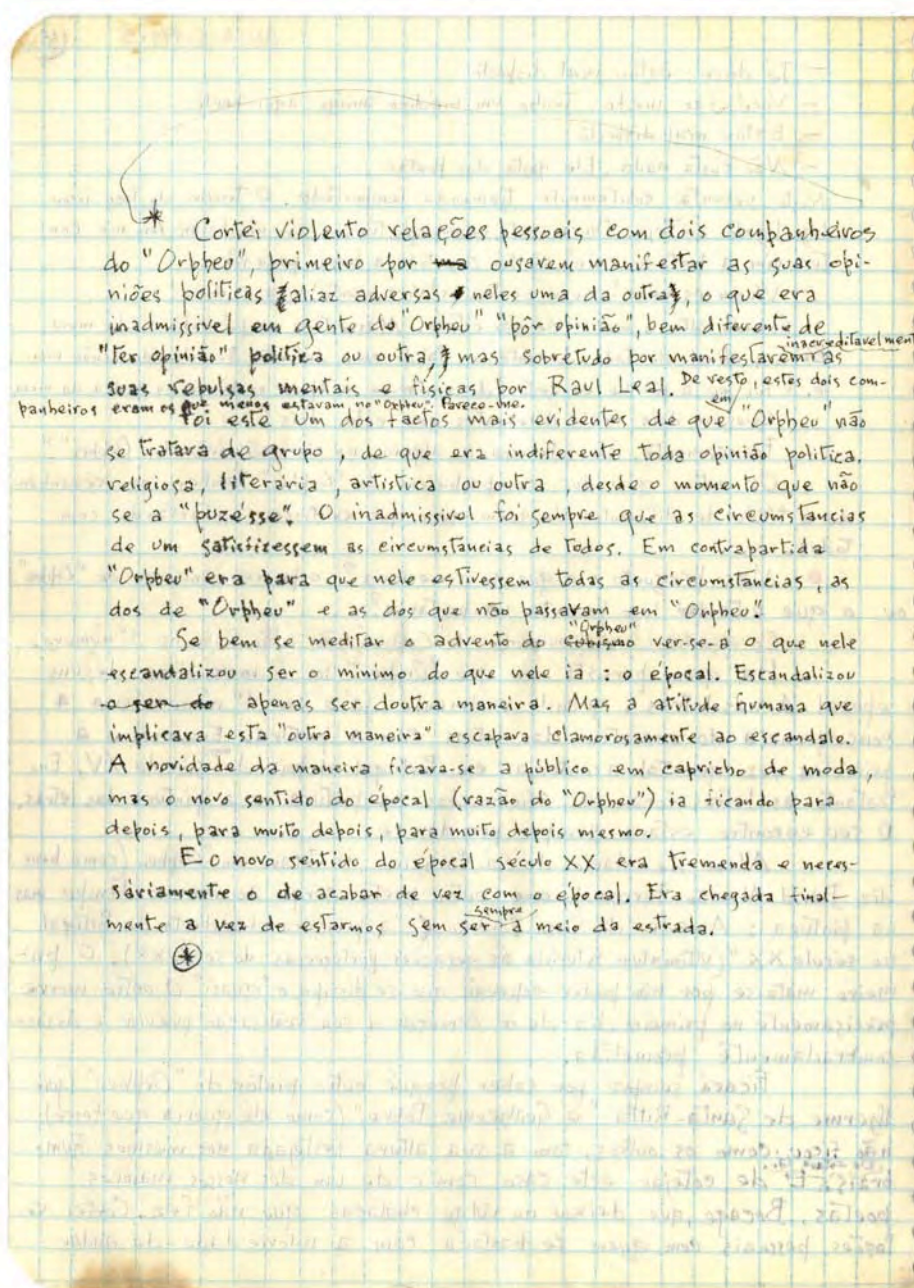 *
Cortei violento relações pessoais com dois companheiros
do "Orpheu", primeiro por ousarem manifestar as suas opi-
niões politicas aliaz adversas neles uma da outra, o que era
inadmissivel em gente do "Orpheu" "pôr opinião", bem diferente de
"ter opinião" politica ou outra, mas sobretudo por manifestarem inacreditavelmente as
suas repulsas mentais e fisicas por Raul Leal. De resto, estes dois com-
panheiros eram os que menos estavam no "Orpheu". Parece-me.
Foi este um dos factos mais evidentes de que em "Orpheu" não
se tratava de grupo, de que era indiferente toda opinião politica,
religiosa, literária, artistica ou outra, desde o momento que não
se a "puzésse". O inadmissivel foi sempre que as circumstancias
de um satisfizessem as circumstancias de todos. Em contrapartida
"Orpheu" era para que nele estivessem todas as circumstancias, as
dos de "Orpheu" e as dos que não passavam em "Orpheu".
Se bem se meditar o advento do "Orpheu" ver-se-á o que nele
escandalizou ser o minimo do que nele ia: o épocal. Escandalizou
apenas ser doutra maneira. Mas a atitude humana que
implicava esta "outra maneira" escapava clamorosamente ao escandalo.
A novidade da maneira ficava-se a público em capricho de moda,
mas o novo sentido do épocal (razão do "Orpheu") ia ficando para
depois, para muito depois, para muito depois mesmo.
E o novo sentido do épocal século XX era tremenda e neces-
sáriamente o de acabar de vez com o épocal. Era chegada final-
mente a vez de estarmos sem ser sempre a meio da estrada.
*